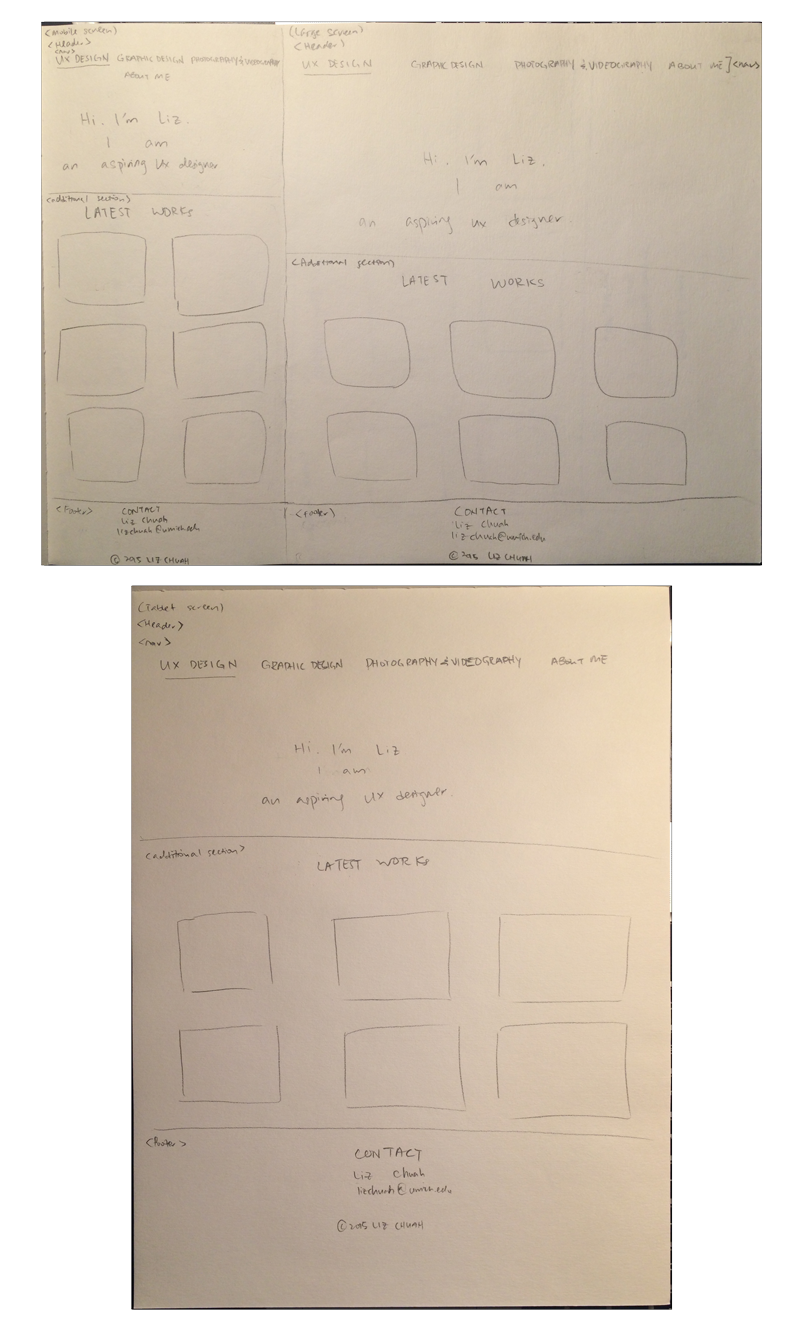 (Mobile screen)
<Header>
<nav>
UX DESIGN GRAPHIC DESIGN PHOTOGRAPHY & VIDEOGRAPHY
ABOUT ME
Hi. I'm Liz.
I am
an aspiring UX designer
<additional section>
LATEST WORKS
<Footer>
CONTACT
Liz Chuah
lizchuah@umich.edu
© 2015 LIZ CHUAH
(Large screen)
<Header>
UX DESIGN GRAPHIC DESIGN PHOTOGRAPHY & VIDEOGRAPHY ABOUT ME ]<nav>
Hi. I'm Liz.
I am
an aspiring ux designer.
<Additional section>
LATEST WORKS
<footer>
CONTACT
Liz Chuah
lizchuah@umich.edu
© 2015 LIZ CHUAH
(Tablet screen)
<Header>
<nav>
UX DESIGN GRAPHIC DESIGN PHOTOGRAPHY & VIDEOGRAPHY ABOUT ME
Hi. I'm Liz
I am
an aspiring UX designer.
<additional section>
LATEST WORKS
<Footer>
CONTACT
Liz Chuah
lizchuah@umich.edu
© 2015 LIZ CHUAH